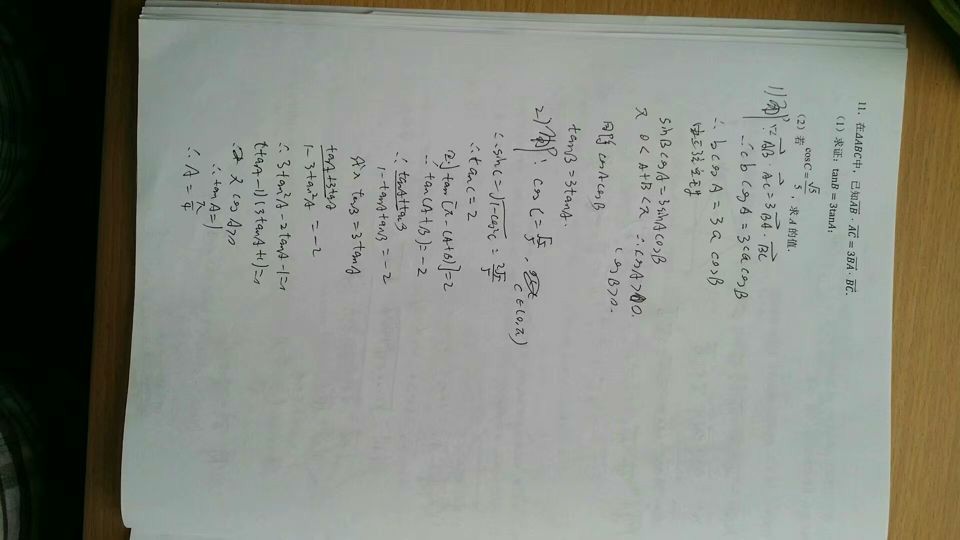 11. 在ΔABC中，已知AB·AC=3BA·BC.
(1) 求证: tanB=3tanA;
(2) 若cosC=√5/5，求A的值.
1) 证: ∵ AB·AC=3BA·BC
∴ cb cosA=3ca cosB
∴ b cosA=3a cosB
由正弦定理
sinBcosA=3sinAcosB
又 0<A+B<π ∴cosA>0.
cosB>0.
同除 cosAcosB
tanB=3tanA.
2) 解: cosC=√5/5, C∈(0,π)
∴sinC=√1-cos²C=2√5/5
∴tanC=2
则tan[π-(A+B)]=2
∴tan(A+B)=-2
∴ tanA+tanB/1-tanAtanB=-2
代入 tanB=3tanA
tanA+3tanA/1-3tan²A=-2
∴3tan²A-2tanA-1=0
(tanA-1)(3tanA+1)=0
又 cosA>0
∴tanA=1
∴A=π/4